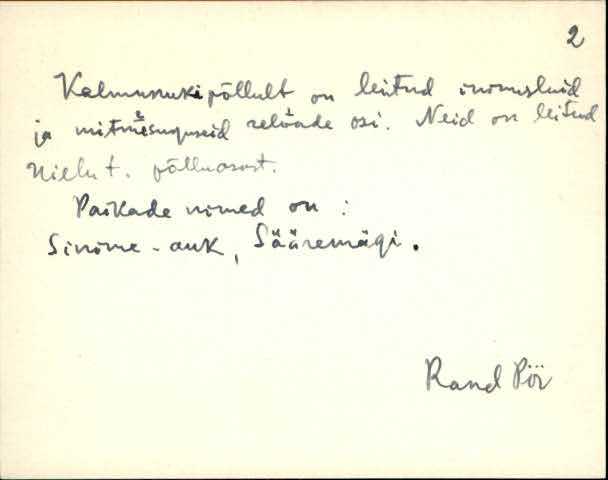 2
Kalmunuki põllult on leitud inimesluid
ja mitmesuguseid relvade osi. Neid on leitud
Nielu t. põlluosast.
Paikade nimed on :
Sinine-auk, Sääremägi.
Rand Pör